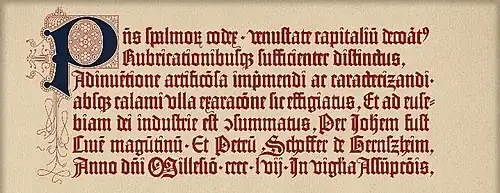 Pñs spalmoꝝ codex · venustate capitaliū decoratꝰ
Rubricationibusqꝫ sufficienter distinctus,
Adinuētione artificiosa imp̄mendi ac caracterizandi ·
absqꝫ calami vlla exaracōne sic effigiatus, Et ad euse-
biam dei industrie est ↄsummatus, Per Johem fust
Ciuē magūtinū · Et Petrū Schoffer de Gernszheim,
Anno dñi Millesio · cccc · lvij · In vigl̓ia Assūpcōis,